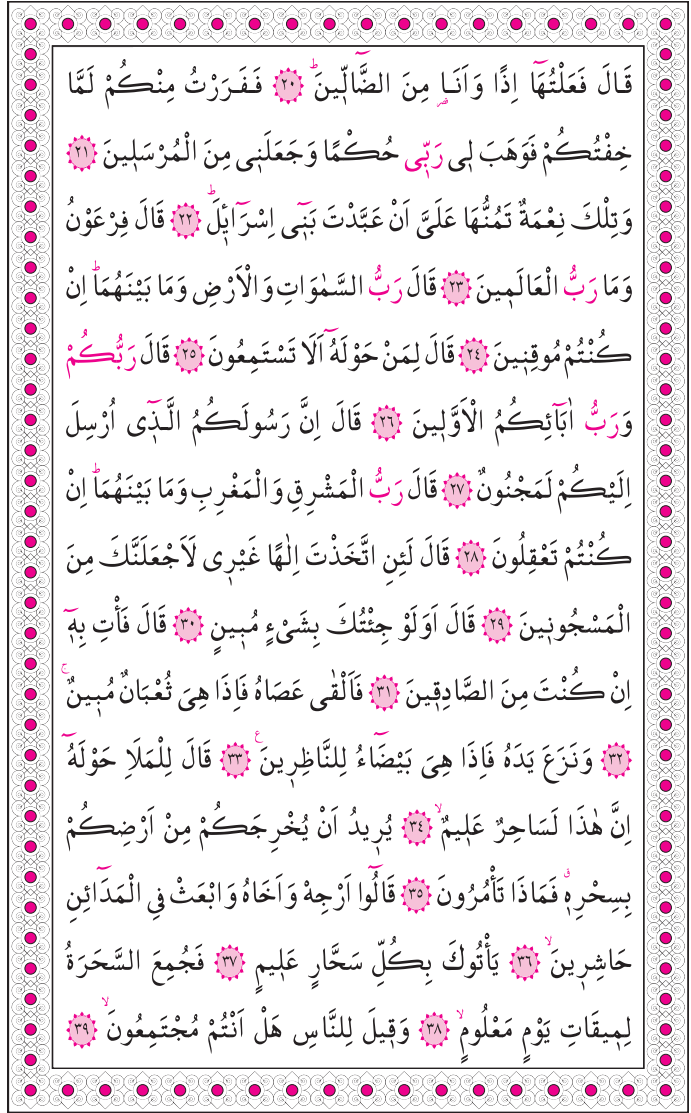 قَالَ فَعَلْتُهَٓا اِذًا وَاَنَا۬ مِنَ الضَّٓالّ۪ينَۜ ﴿٢٠﴾ فَفَرَرْتُ مِنْكُمْ لَمَّا
خِفْتُكُمْ فَوَهَبَ ل۪ي رَبّ۪ي حُكْمًا وَجَعَلَن۪ي مِنَ الْمُرْسَل۪ينَ ﴿٢١﴾
وَتِلْكَ نِعْمَةٌ تَمُنُّهَا عَلَيَّ اَنْ عَبَّدْتَ بَن۪ٓي اِسْرَٓائ۪لَۜ ﴿٢٢﴾ قَالَ فِرْعَوْنُ
وَمَا رَبُّ الْعَالَم۪ينَ ﴿٢٣﴾ قَالَ رَبُّ السَّمٰوَاتِ وَالْاَرْضِ وَمَا بَيْنَهُمَاۜ اِنْ
كُنْتُمْ مُوقِن۪ينَ ﴿٢٤﴾ قَالَ لِمَنْ حَوْلَهُٓ اَلَا تَسْتَمِعُونَ ﴿٢٥﴾ قَالَ رَبُّكُمْ
وَرَبُّ اٰبَٓائِكُمُ الْاَوَّل۪ينَ ﴿٢٦﴾ قَالَ اِنَّ رَسُولَكُمُ الَّذ۪ٓي اُرْسِلَ
اِلَيْكُمْ لَمَجْنُونٌ ﴿٢٧﴾ قَالَ رَبُّ الْمَشْرِقِ وَالْمَغْرِبِ وَمَا بَيْنَهُمَاۜ اِنْ
كُنْتُمْ تَعْقِلُونَ ﴿٢٨﴾ قَالَ لَئِنِ اتَّخَذْتَ اِلٰهًا غَيْر۪ي لَاَجْعَلَنَّكَ مِنَ
الْمَسْجُون۪ينَ ﴿٢٩﴾ قَالَ اَوَلَوْ جِئْتُكَ بِشَيْءٍ مُب۪ينٍ ﴿٣٠﴾ قَالَ فَأْتِ بِه۪ٓ
اِنْ كُنْتَ مِنَ الصَّادِق۪ينَ ﴿٣١﴾ فَاَلْقٰى عَصَاهُ فَاِذَا هِيَ ثُعْبَانٌ مُب۪ينٌۚ
﴿٣٢﴾ وَنَزَعَ يَدَهُ فَاِذَا هِيَ بَيْضَٓاءُ لِلنَّاظِر۪ينَ۟ ﴿٣٣﴾ قَالَ لِلْمَلَأِ حَوْلَهُٓ
اِنَّ هٰذَا لَسَاحِرٌ عَل۪يمٌۙ ﴿٣٤﴾ يُر۪يدُ اَنْ يُخْرِجَكُمْ مِنْ اَرْضِكُمْ
بِسِحْرِه۪ۗ فَمَاذَا تَأْمُرُونَ ﴿٣٥﴾ قَالُٓوا اَرْجِهْ وَاَخَاهُ وَابْعَثْ فِي الْمَدَٓائِنِ
حَاشِر۪ينَۙ ﴿٣٦﴾ يَأْتُوكَ بِكُلِّ سَحَّارٍ عَل۪يمٍ ﴿٣٧﴾ فَجُمِعَ السَّحَرَةُ
لِم۪يقَاتِ يَوْمٍ مَعْلُومٍۙ ﴿٣٨﴾ وَق۪يلَ لِلنَّاسِ هَلْ اَنْتُمْ مُجْتَمِعُونَۙ ﴿٣٩﴾